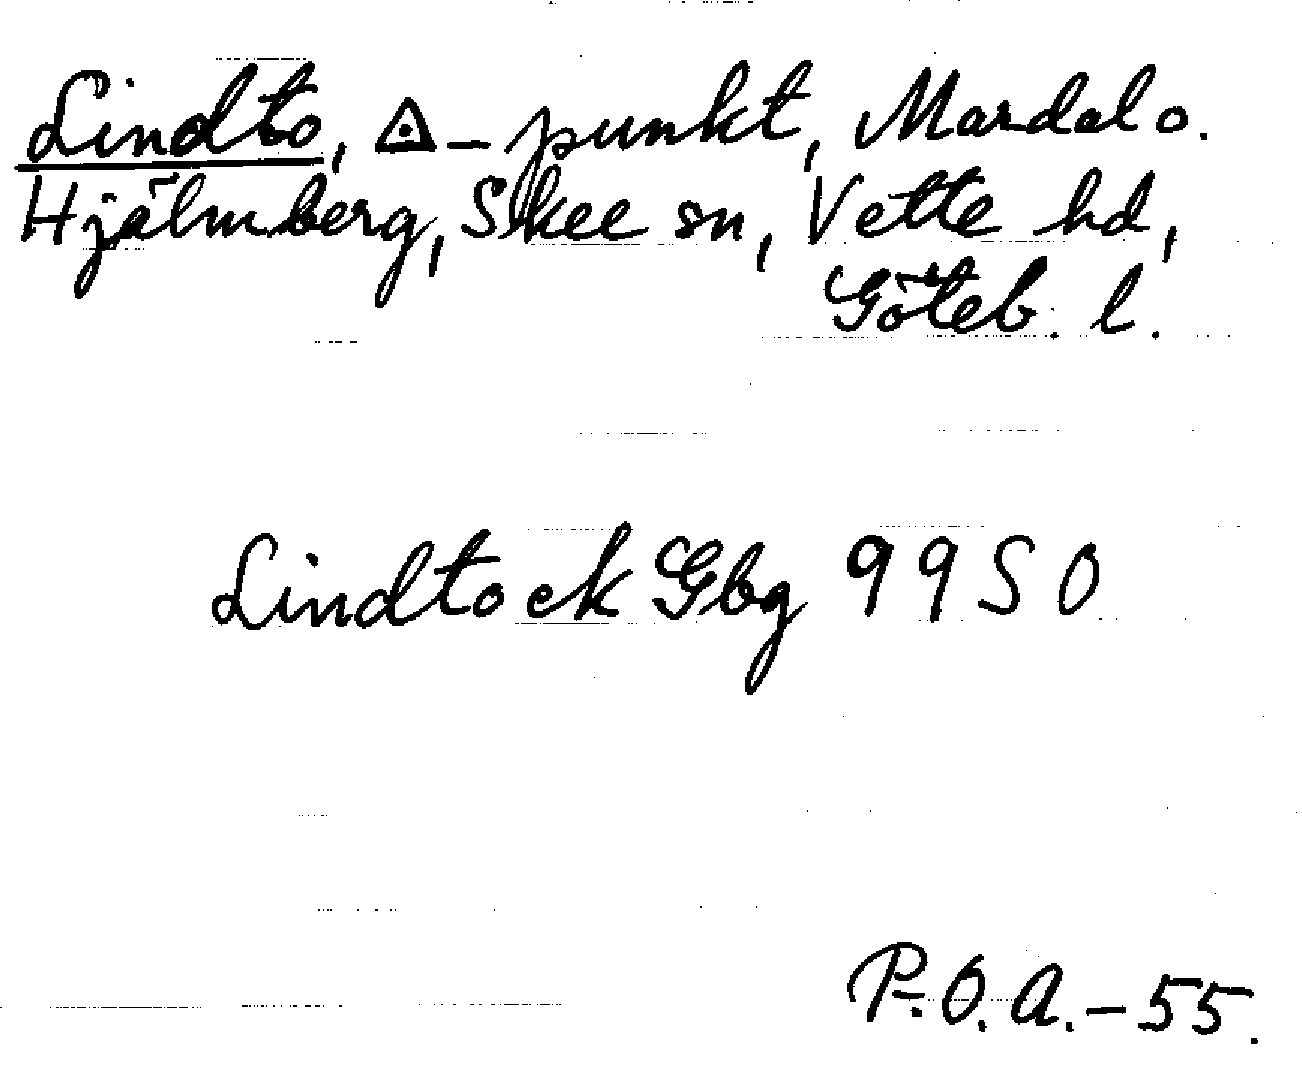 Lindto, ◬-punkt, Mardal o.
Hjälmberg, Skee sn, Vette hd,
Göteb. l.
Lindtock Gbg 99 S O
P.O.A.-55.